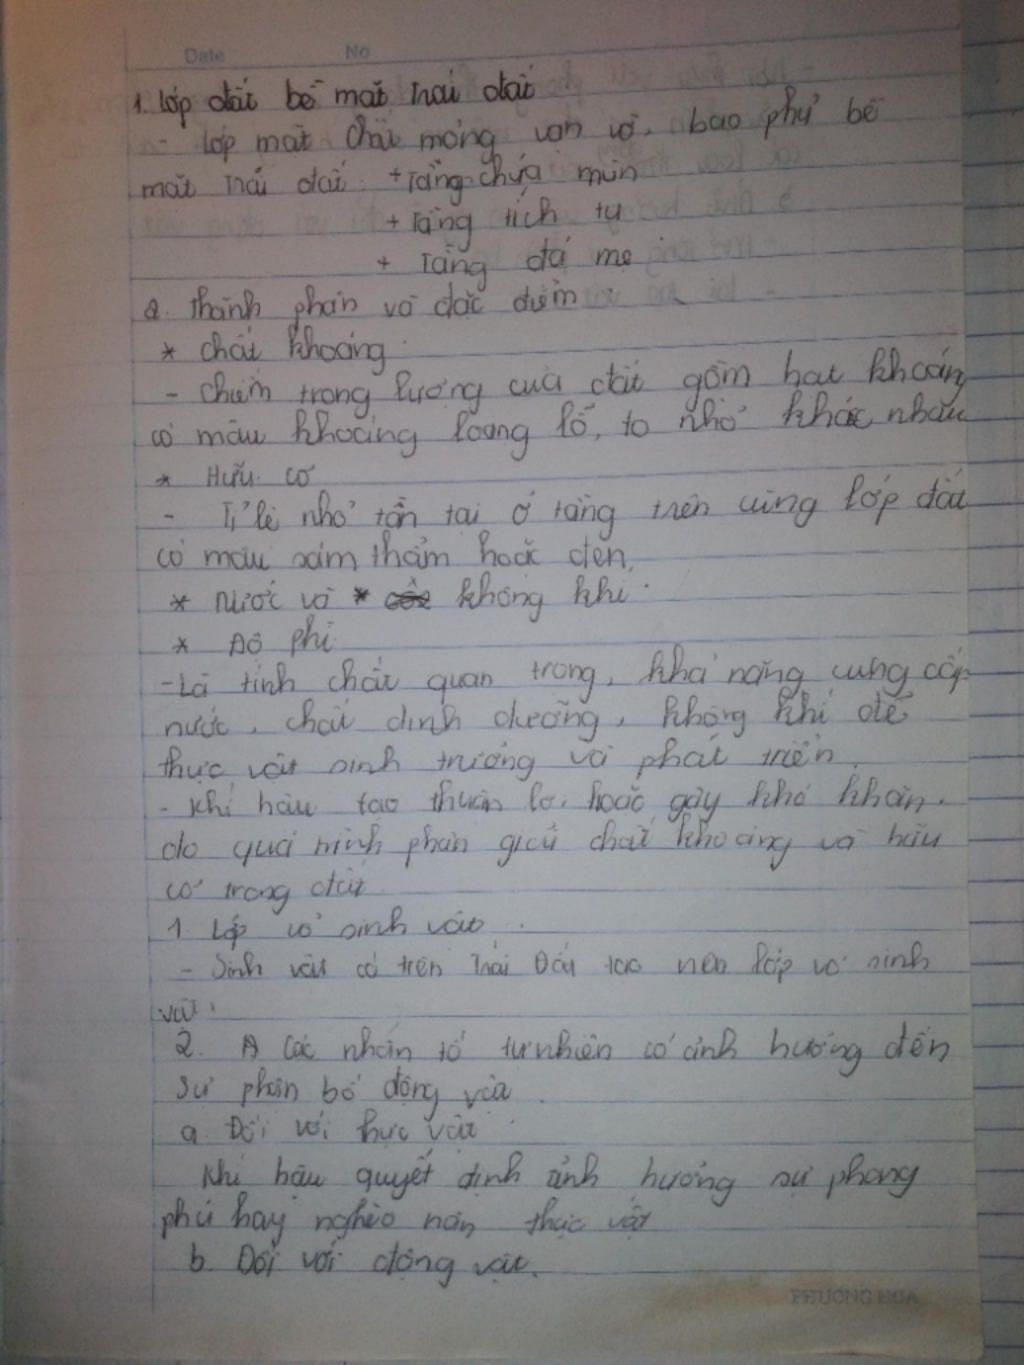 Date No
1. Lớp đất bề mặt trái đất
- Lớp mặt chất mỏng vụn vỡ, bao phủ bề
mặt trái đất. + Tầng chứa mùn
+ Tầng tích tụ
+ Tầng đá mẹ
2. Thành phần và đặc điểm
* Chất khoáng
- Chiếm trọng lượng của đất gồm hạt khoáng
có màu khoáng loang lổ, to nhỏ khác nhau
* Hữu cơ
- Tỉ lệ nhỏ tồn tại ở tầng trên cùng lớp đất
có màu xám thẩm hoặc đen.
* Nước và * không khí.
* Độ phì
- Là tính chất quan trọng, khả năng cung cấp
nước, chất dinh dưỡng, không khí để
thực vật sinh trưởng và phát triển.
- Khí hậu tạo thuận lợi hoặc gây khó khăn.
do quá trình phân giải chất khoáng và hữu
cơ trong đất
1. Lớp vỏ sinh vật.
- Sinh vật có trên Trái Đất tạo nên lớp vỏ sinh
vật.
2. Các nhân tố tự nhiên có ảnh hưởng đến
sự phân bố động vật.
a. Đối với thực vật
Khí hậu quyết định ảnh hưởng sự phong
phú hay nghèo nàn thực vật
b. Đối với động vật.
PHUONG HOA